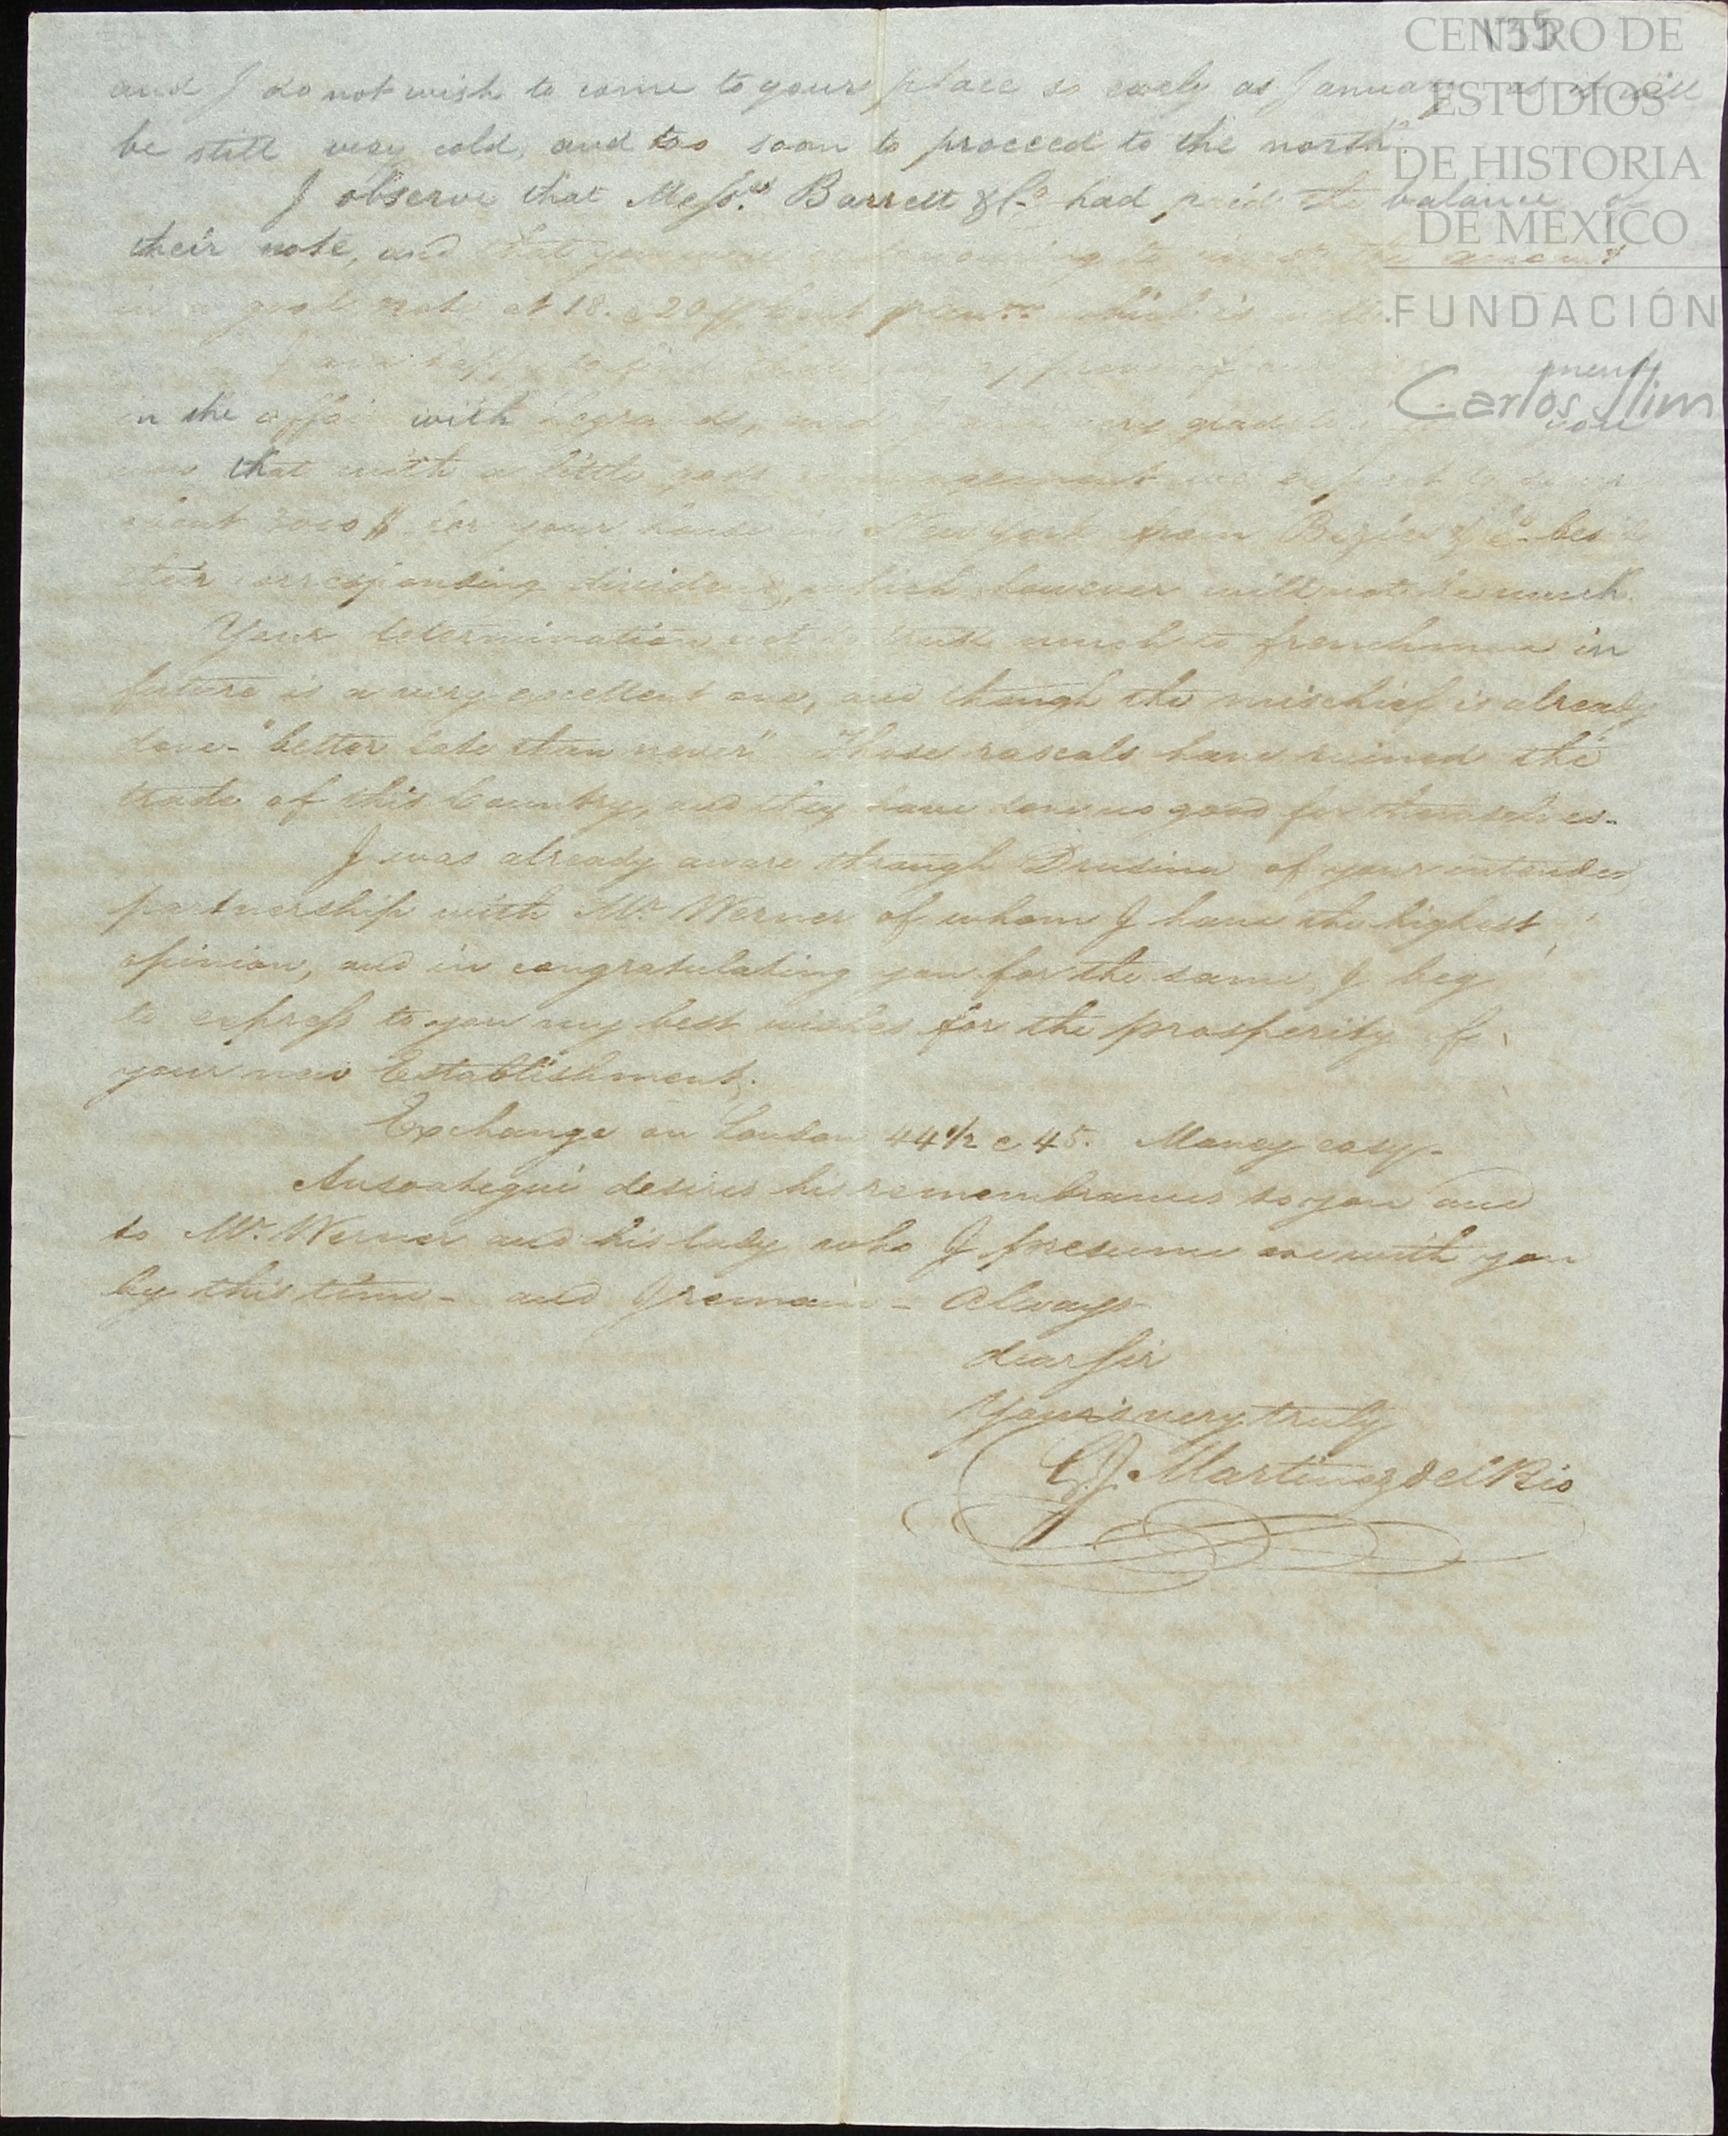 135
CENTRO DE
ESTUDIOS
DE HISTORIA
DE MÉXICO
FUNDACIÓN
Carlos Slim
and I do not wish to come to yours place so early as January as it will
be still very cold, and too soon to proceed to the north.
I observe that Messrs. Barrett & Co. had paid the balance of
their note, and that you were to the amount
in a good note at 18 a 20 which is well.
I am happy to find that
in the affair with Legrands, and glad to you
now that with a little good management we expect to
about 3000 $ for your house in New York from & Co. besides
their corresponding dividend, which however will not be much.
Your determination not to trust much to frenchmen in
future is a very excellent one, and though the mischief is already
done - "better late than never" Those rascals have ruined the
trade of this Country, and they have done no good for themselves -
I was already aware through Drusina of your intended
partnership with Mr. Werner of whom I have the highest
opinion, and in congratulating you for the same, I beg
to express to you my best wishes for the prosperity of
your new Establishment.
Exchange on London 44 1/2 a 45. Money easy -
Ansoategui desires his remembrances to you and
to Mr. Werner and his lady who I presume are with you
by this time - and I remain - Always
dear Sir
Yours very truly
G.J. Martinez del Rio